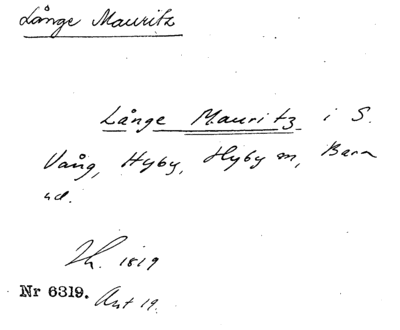 Långe Mauritz
Långe Mauritz i S.
Vång, Hyby, Hyby sn, Bara
hd.
Th. 1819
Nr 6319. Ant 19.